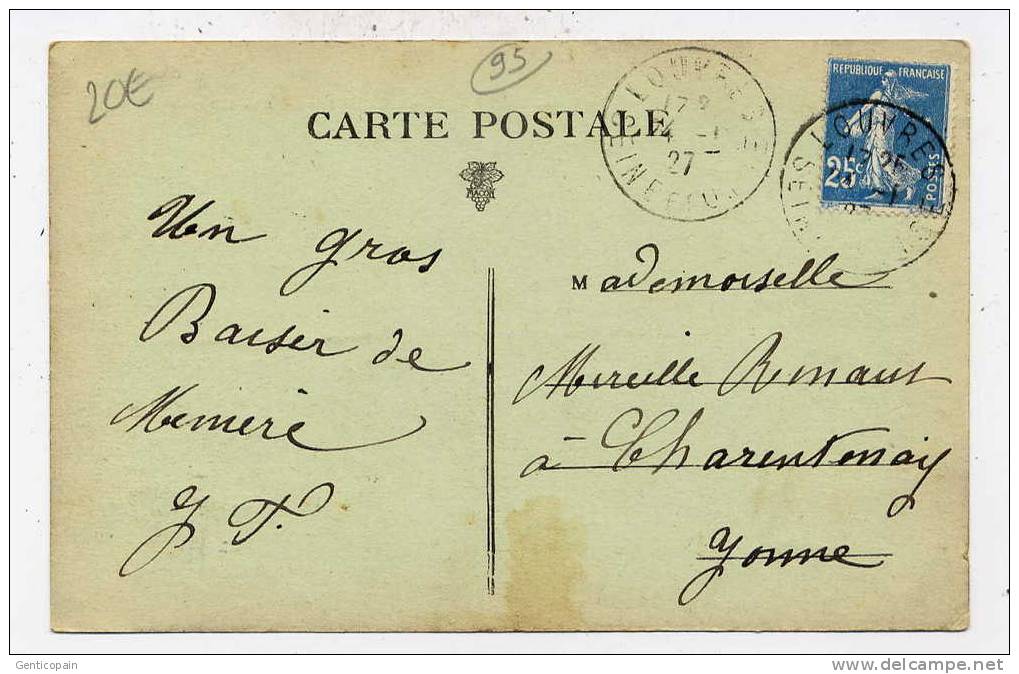 20€
95
CARTE POSTALE
MACON
LOUVRES
SEINE ET OISE
27
REPUBLIQUE FRANÇAISE
25c
POSTES
LOUVRES
17 25
Un gros
Baiser de
Mémère
J T.
Mademoiselle
Mireille Renaut
à Charentenay
Yonne
Genticopain
www.delcampe.net